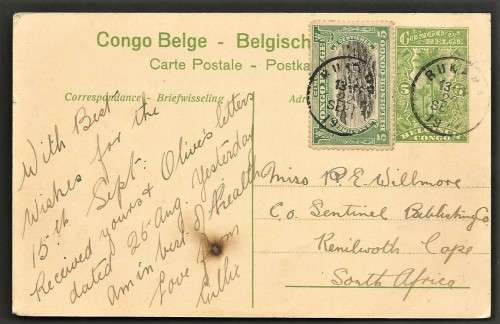 Congo Belge - Belgisch
Carte Postale - Postka
Correspondance - Briefwisseling
Adr
CONGO BELGE
5
5
CONGO
BELGE
5
5
CONGO
With Best
Wishes for the
15th Sept:
Received yours & Olive's letters
dated 25 Aug. Yesterday
am in best of health
Love from
Miss P. E. Willmore
C.o. Sentinel Publishing Co
Kenilworth Cape
South Africa